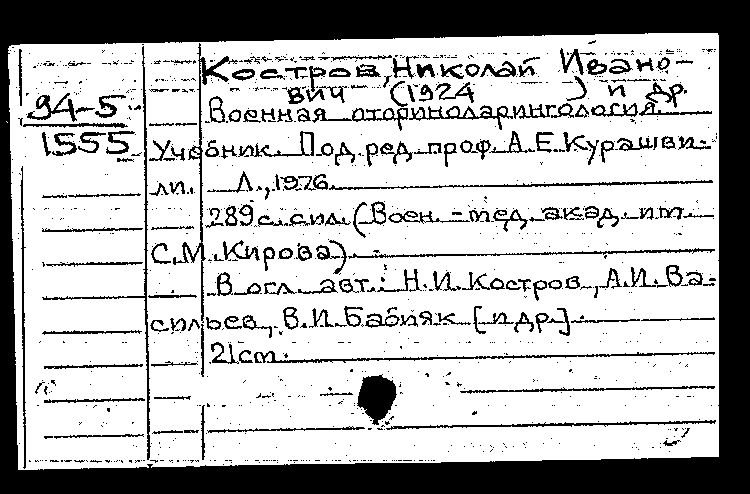 Костров, Николай Ивано-
вич (1924 ) и др.
94-5
Военная оториноларингология.
1555
Учебник. Под ред. проф. А.Е. Курашви-
ли. Л., 1976.
289 с. с ил. (Воен.-мед. акад. им.
С.М. Кирова).
В огл. авт.: Н.И. Костров, А.И. Ва-
сильев, В.И. Бабияк [и др.].
21 см.